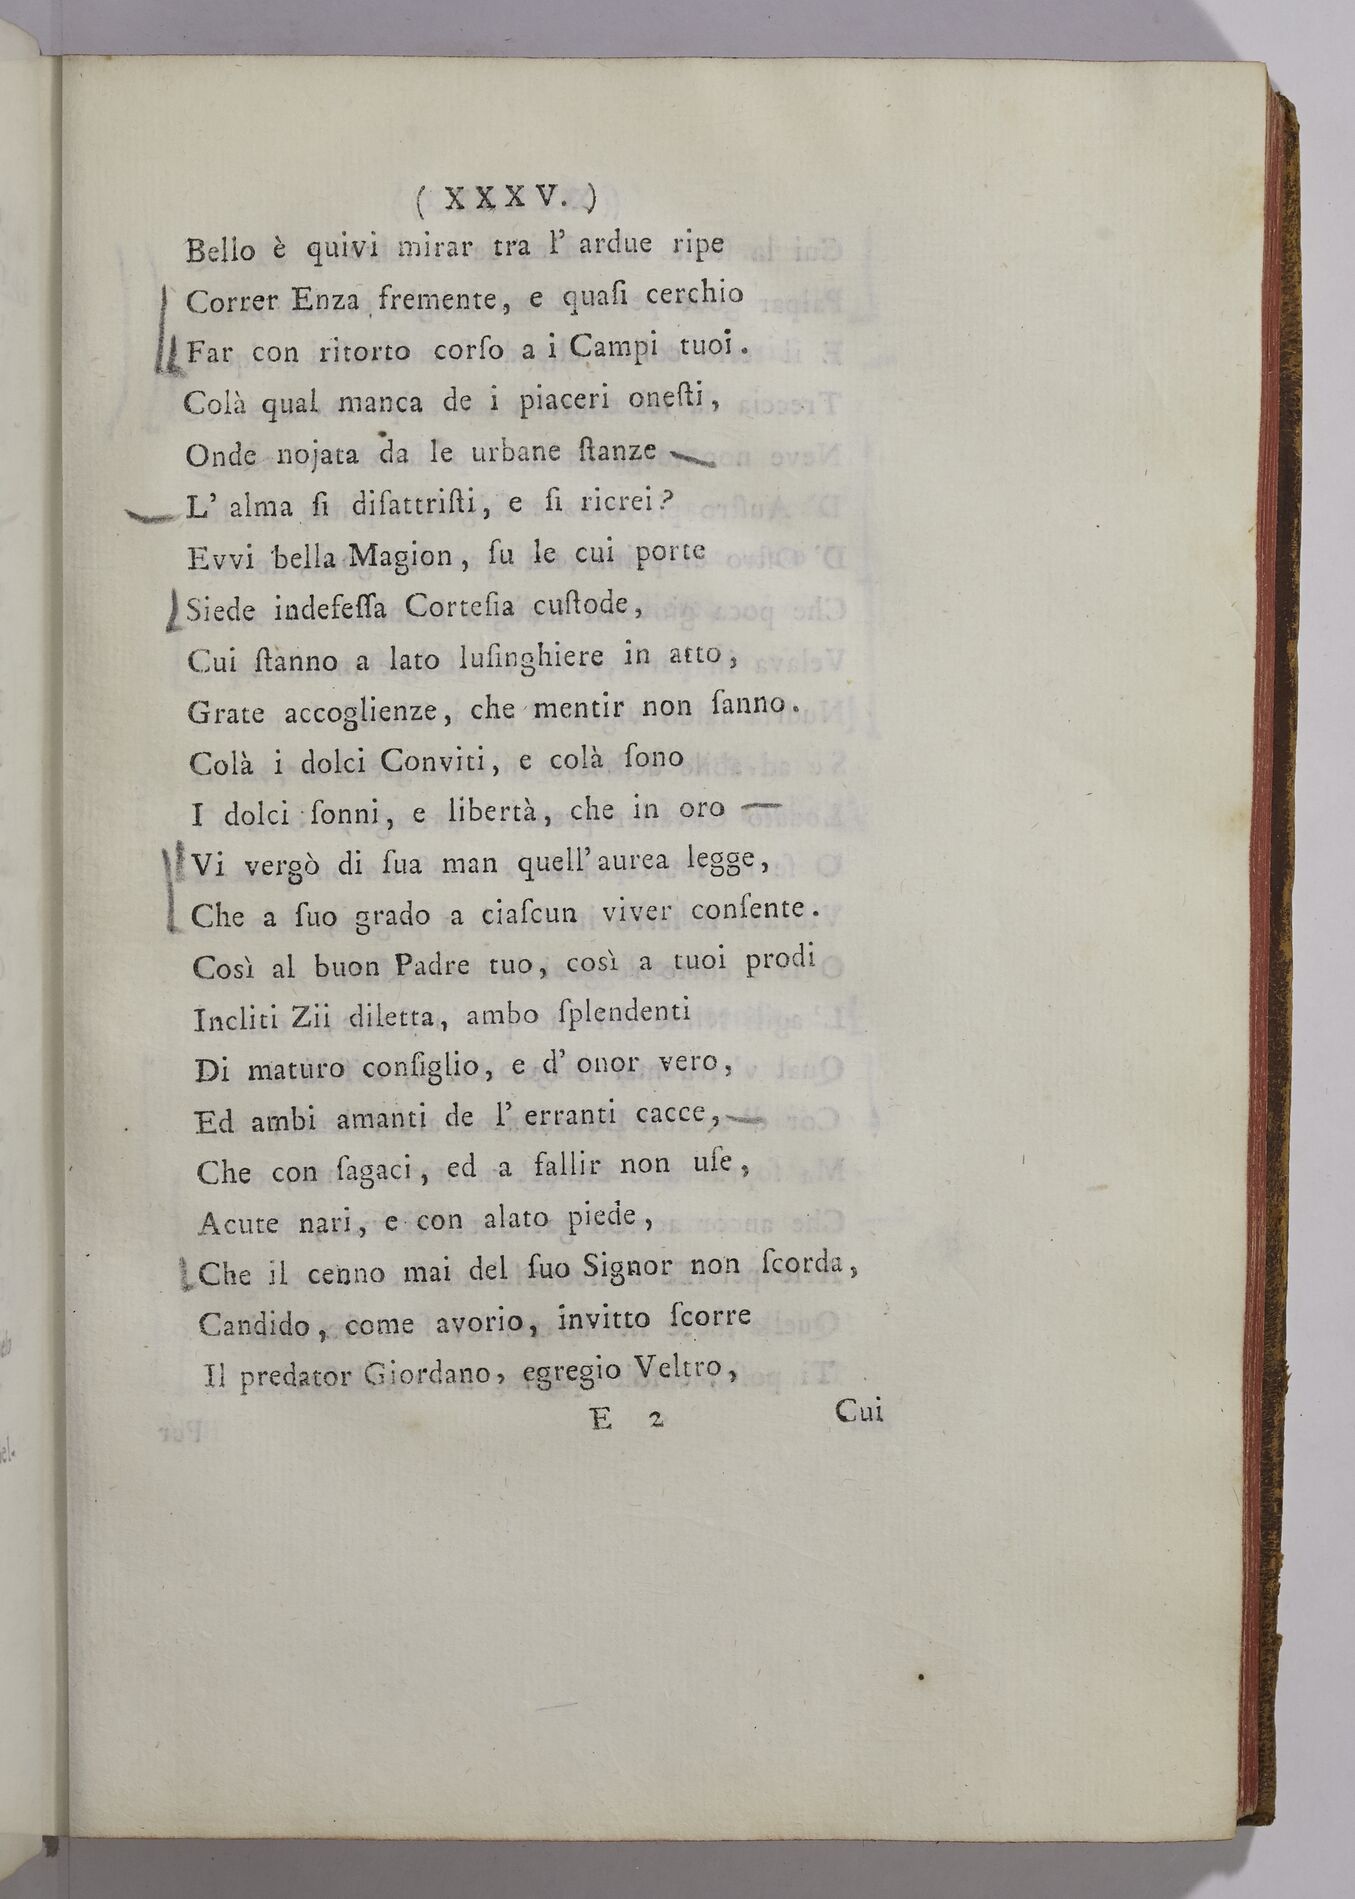 ( XXXV. )
Bello è quivi mirar tra l' ardue ripe
Correr Enza fremente, e quaſi cerchio
Far con ritorto corſo a i Campi tuoi.
Colà qual manca de i piaceri oneſti,
Onde nojata da le urbane ſtanze
L' alma ſi diſattriſti, e ſi ricrei?
Evvi bella Magion, ſu le cui porte
Siede indefeſſa Corteſia cuſtode,
Cui ſtanno a lato luſinghiere in atto,
Grate accoglienze, che mentir non ſanno.
Colà i dolci Conviti, e colà ſono
I dolci ſonni, e libertà, che in oro
Vi vergò di ſua man quell' aurea legge,
Che a ſuo grado a ciaſcun viver conſente.
Così al buon Padre tuo, così a tuoi prodi
Incliti Zii diletta, ambo ſplendenti
Di maturo conſiglio, e d' onor vero,
Ed ambi amanti de l' erranti cacce,
Che con ſagaci, ed a fallir non uſe,
Acute nari, e con alato piede,
Che il cenno mai del ſuo Signor non ſcorda,
Candido, come avorio, invitto ſcorre
Il predator Giordano, egregio Veltro,
E 2 Cui